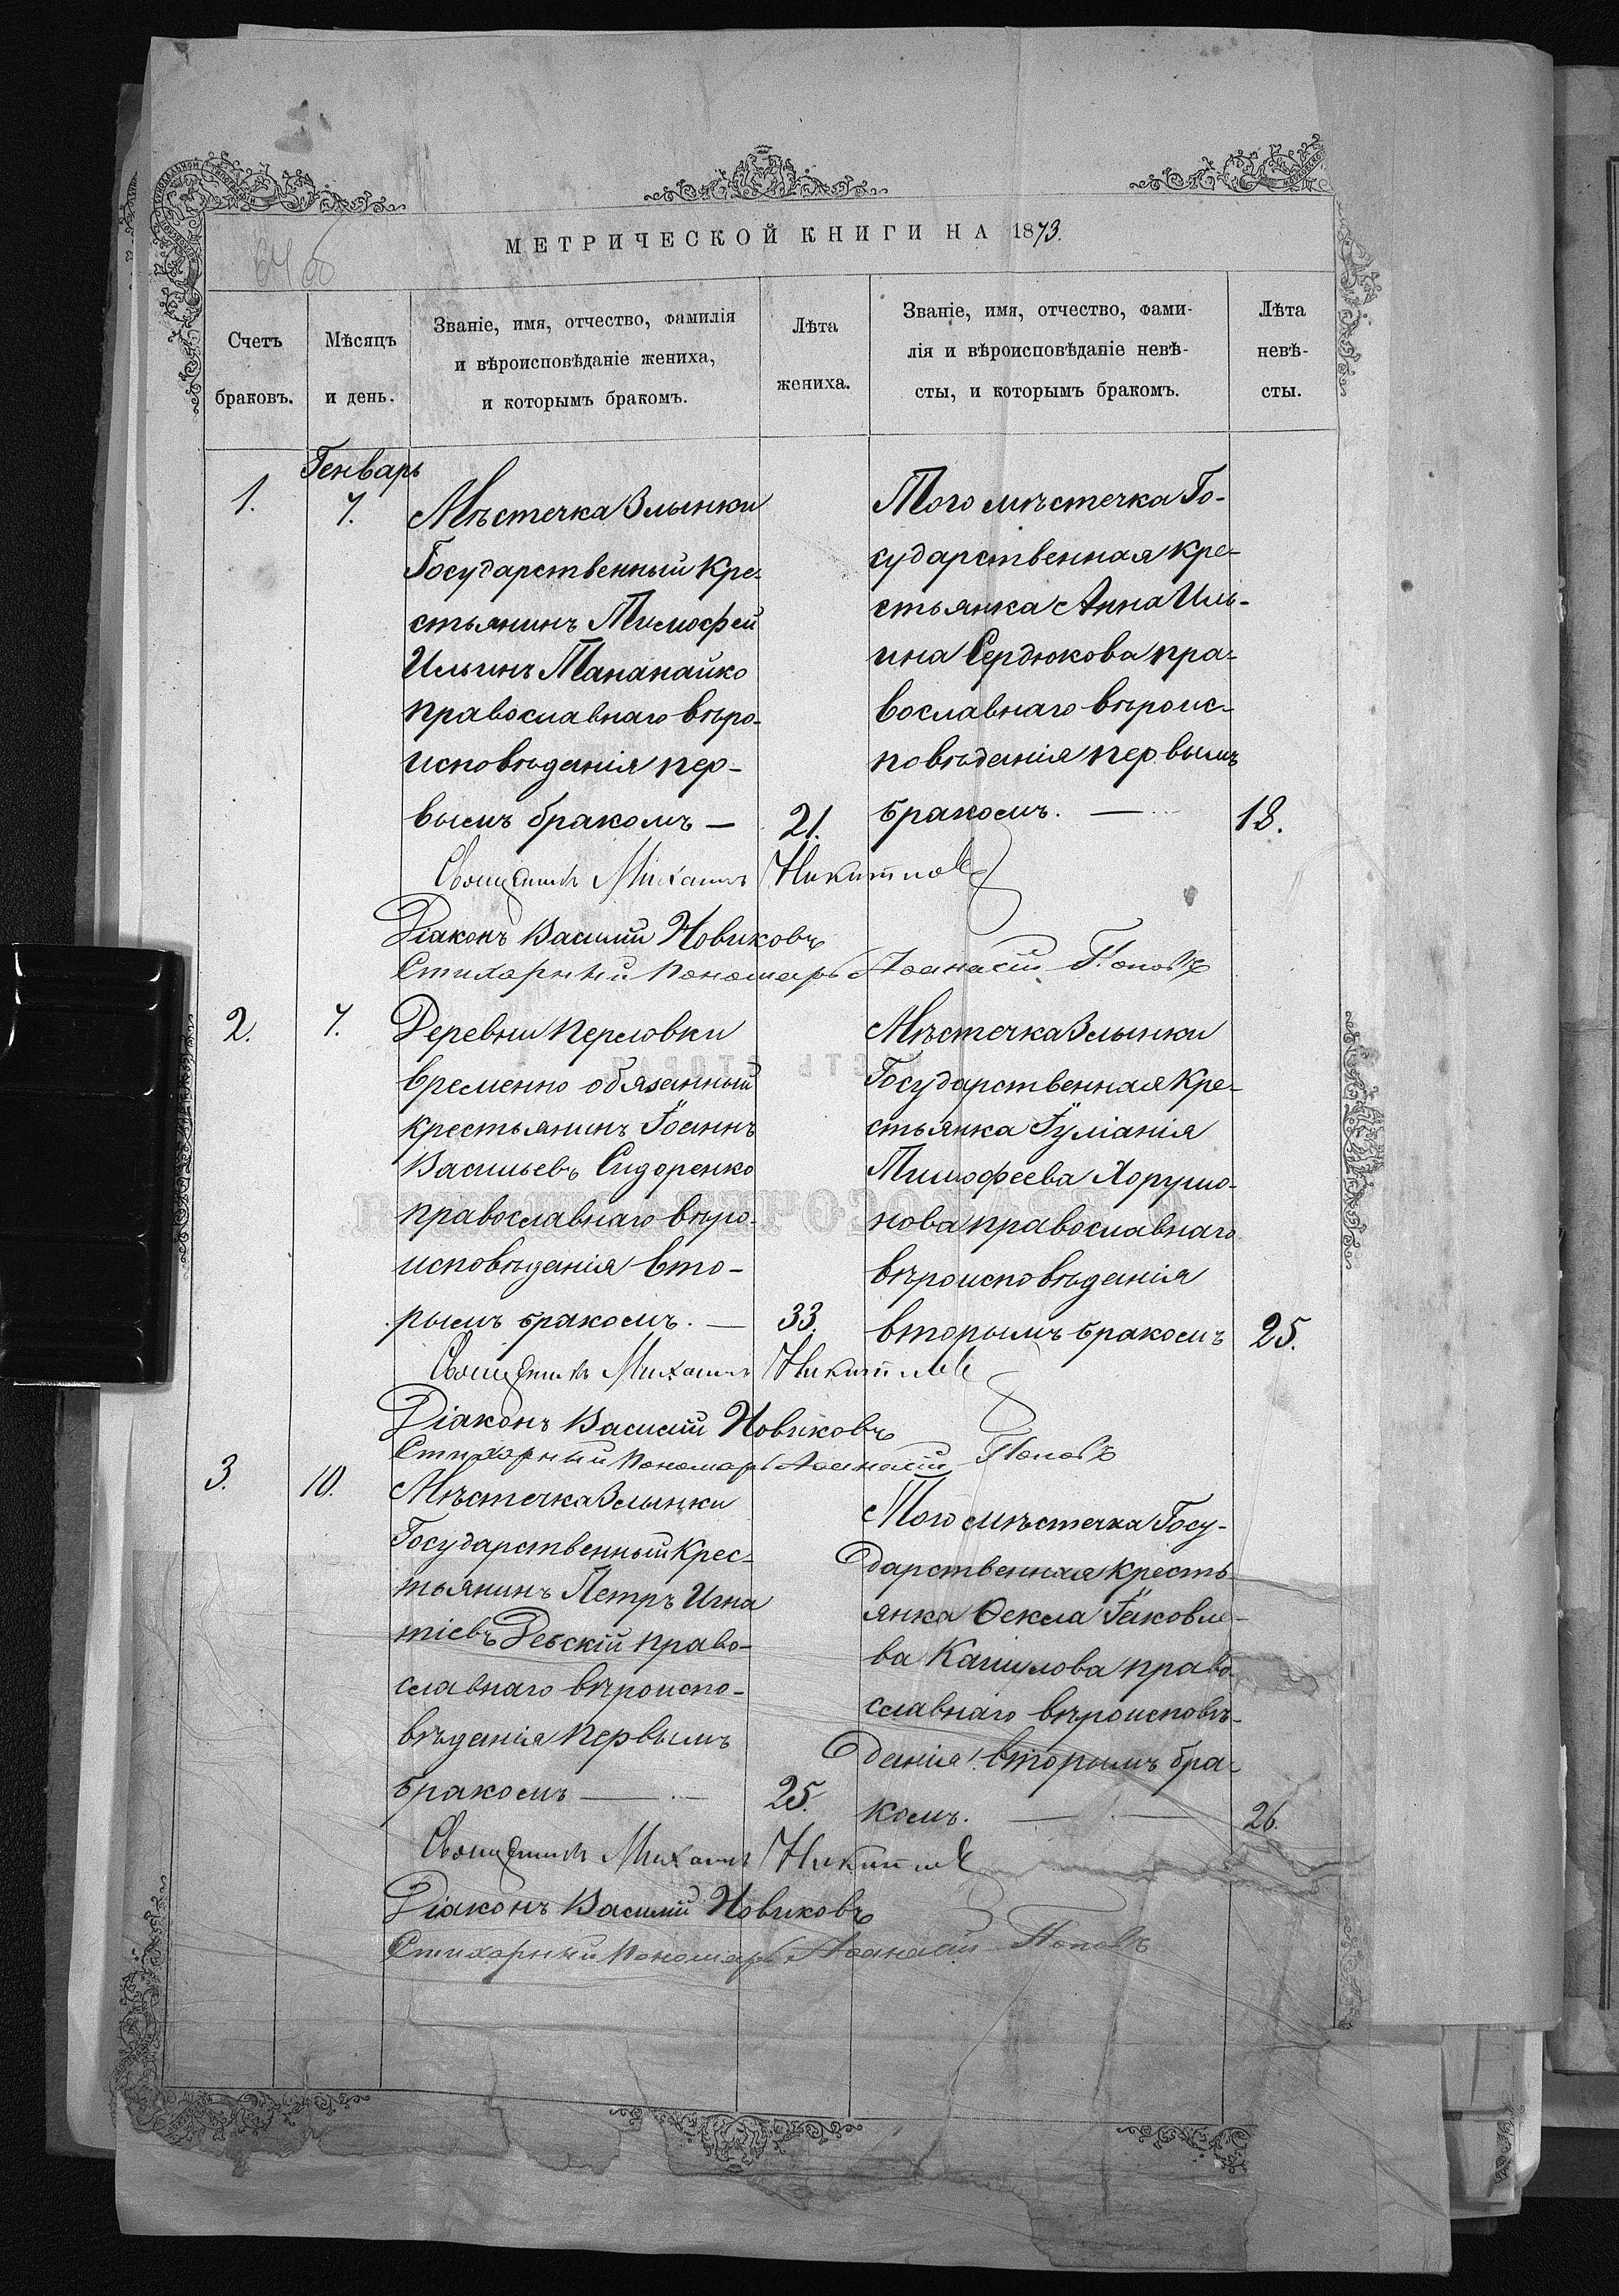 МЕТРИЧЕСКОЙ КНИГИ НА 1873.
Счетъ
браковъ.
Мѣсяцъ
и день.
Званіе, имя, отчество, фамилія
и вѣроисповѣданіе жениха,
и которымъ бракомъ.
Лѣта
жениха.
Званіе, имя, отчество, фами-
лія и вѣроисповѣданіе невѣ-
сты, и которымъ бракомъ.
Лѣта
невѣ-
сты.
Генварь
1.
7.
Мѣстечка Злынки
Государственный кре-
стьянинъ Тимофей
Ильинъ Тананайко
православнаго вѣро-
исповѣданія пер-
вымъ бракомъ —
21.
Того мѣстечка Го-
сударственная кре-
стьянка Анна Иль-
ина Сердюкова пра-
вославнаго вѣроис-
повѣданія первымъ
бракомъ. —
18.
Священникъ Михаилъ Никитловъ
Діаконъ Василій Новиковъ
Стихарный пономарь Аѳанасій Поповъ
2.
7.
Деревни Перловки
временно обязанный
крестьянинъ Іоаннъ
Васильевъ Сидоренко
православнаго вѣро-
исповѣданія вто-
рымъ бракомъ. —
33.
Мѣстечка Злынки
Государственная кре-
стьянка Іуліанія
Тимофеева Хорушо-
нова православнаго
вѣроисповѣданія
вторымъ бракомъ
25.
Священникъ Михаилъ Никитловъ
Діаконъ Василій Новиковъ
Стихарный пономарь Аѳанасій Поповъ
3.
10.
Мѣстечка Злынки
Государственный Крес-
тьянинъ Петръ Игна
тіевъ Дебскій право-
славнаго вѣроиспо-
вѣданія первымъ
бракомъ —
25.
Того мѣстечка Госу-
дарственная кресть
янка Ѳекла Іаковле-
ва Капилова право
славнаго вѣроисповѣ-
данія вторымъ бра-
комъ. —
26.
Священникъ Михаилъ Никитловъ
Діаконъ Василій Новиковъ
Стихарный пономарь Аѳанасій Поповъ